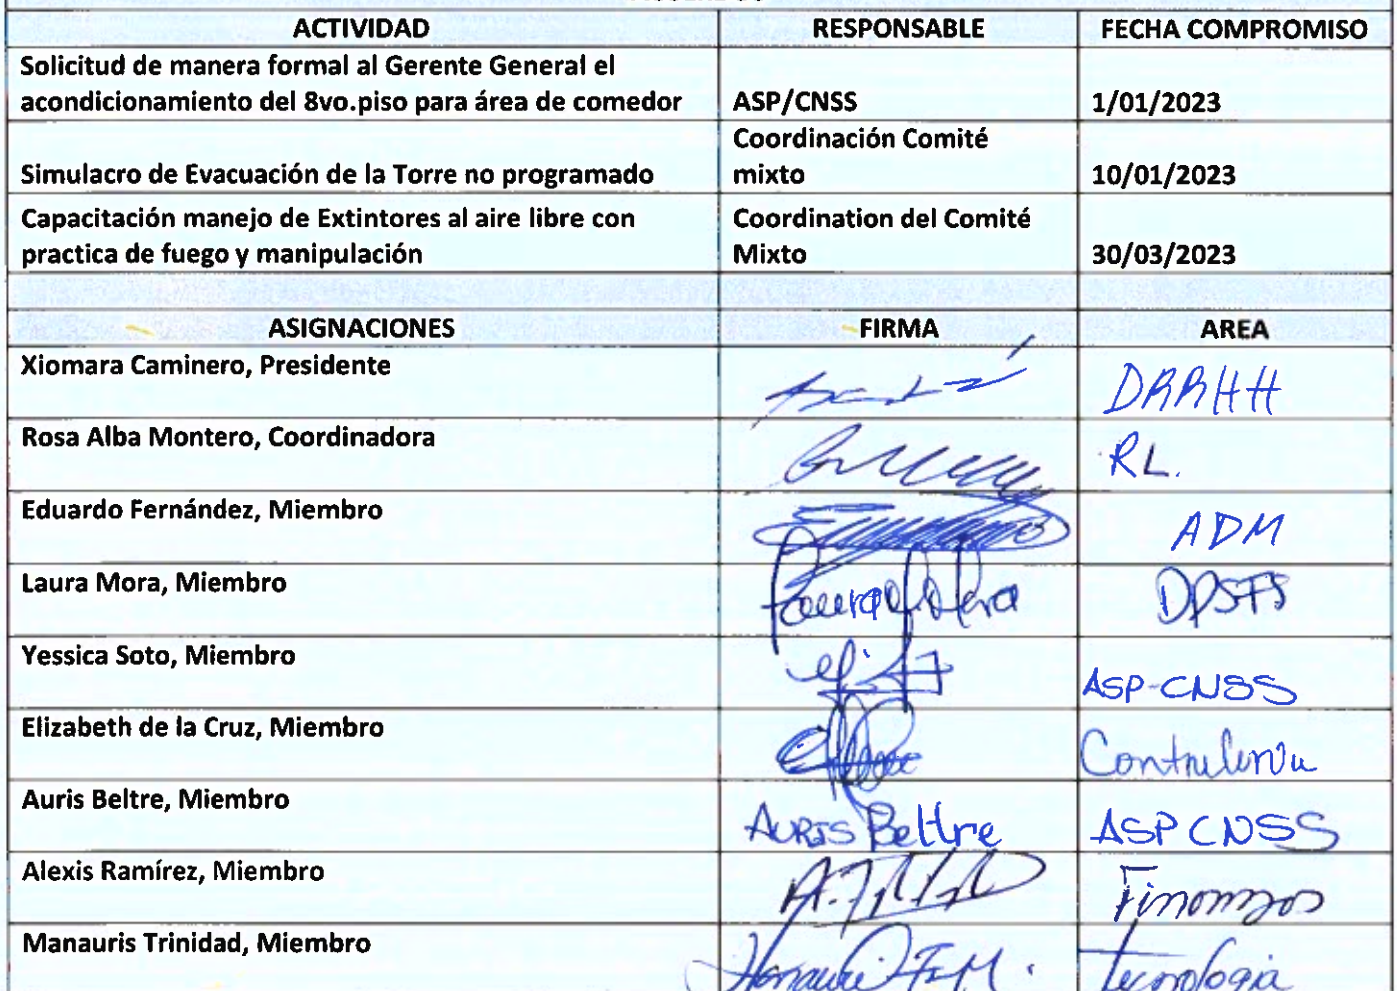 ACTIVIDAD RESPONSABLE FECHA COMPROMISO
Solicitud de manera formal al Gerente General el
acondicionamiento del 8vo.piso para área de comedor ASP/CNSS 1/01/2023
Coordinación Comité
Simulacro de Evacuación de la Torre no programado mixto 10/01/2023
Capacitación manejo de Extintores al aire libre con Coordination del Comité
practica de fuego y manipulación Mixto 30/03/2023
ASIGNACIONES FIRMA AREA
Xiomara Caminero, Presidente DRRHH
Rosa Alba Montero, Coordinadora RL.
Eduardo Fernández, Miembro ADM
Laura Mora, Miembro Laura Mora DPSFS
Yessica Soto, Miembro ASP-CNSS
Elizabeth de la Cruz, Miembro Contraloria
Auris Beltre, Miembro Auris Beltre ASP CNSS
Alexis Ramírez, Miembro Finanzas
Manauris Trinidad, Miembro Tecnologia